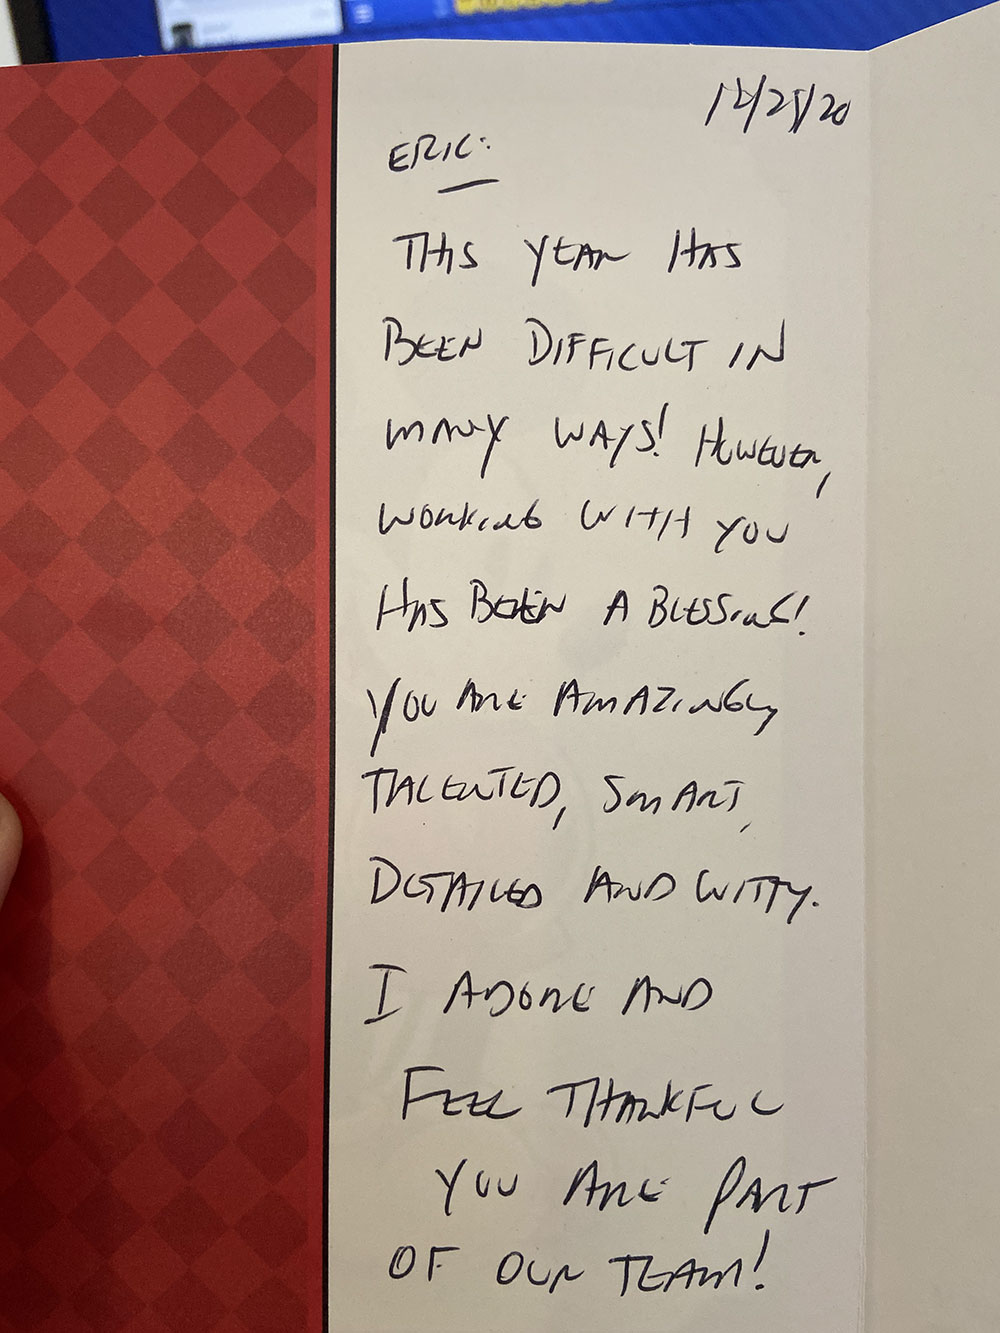 12/25/20
ERIC:
THIS YEAR HAS
BEEN DIFFICULT IN
MANY WAYS! HOWEVER,
WORKING WITH YOU
HAS BEEN A BLESSING!
YOU ARE AMAZINGLY
TALENTED, SMART,
DETAILED AND WITTY.
I ADORE AND
FEEL THANKFUL
YOU ARE PART
OF OUR TEAM!